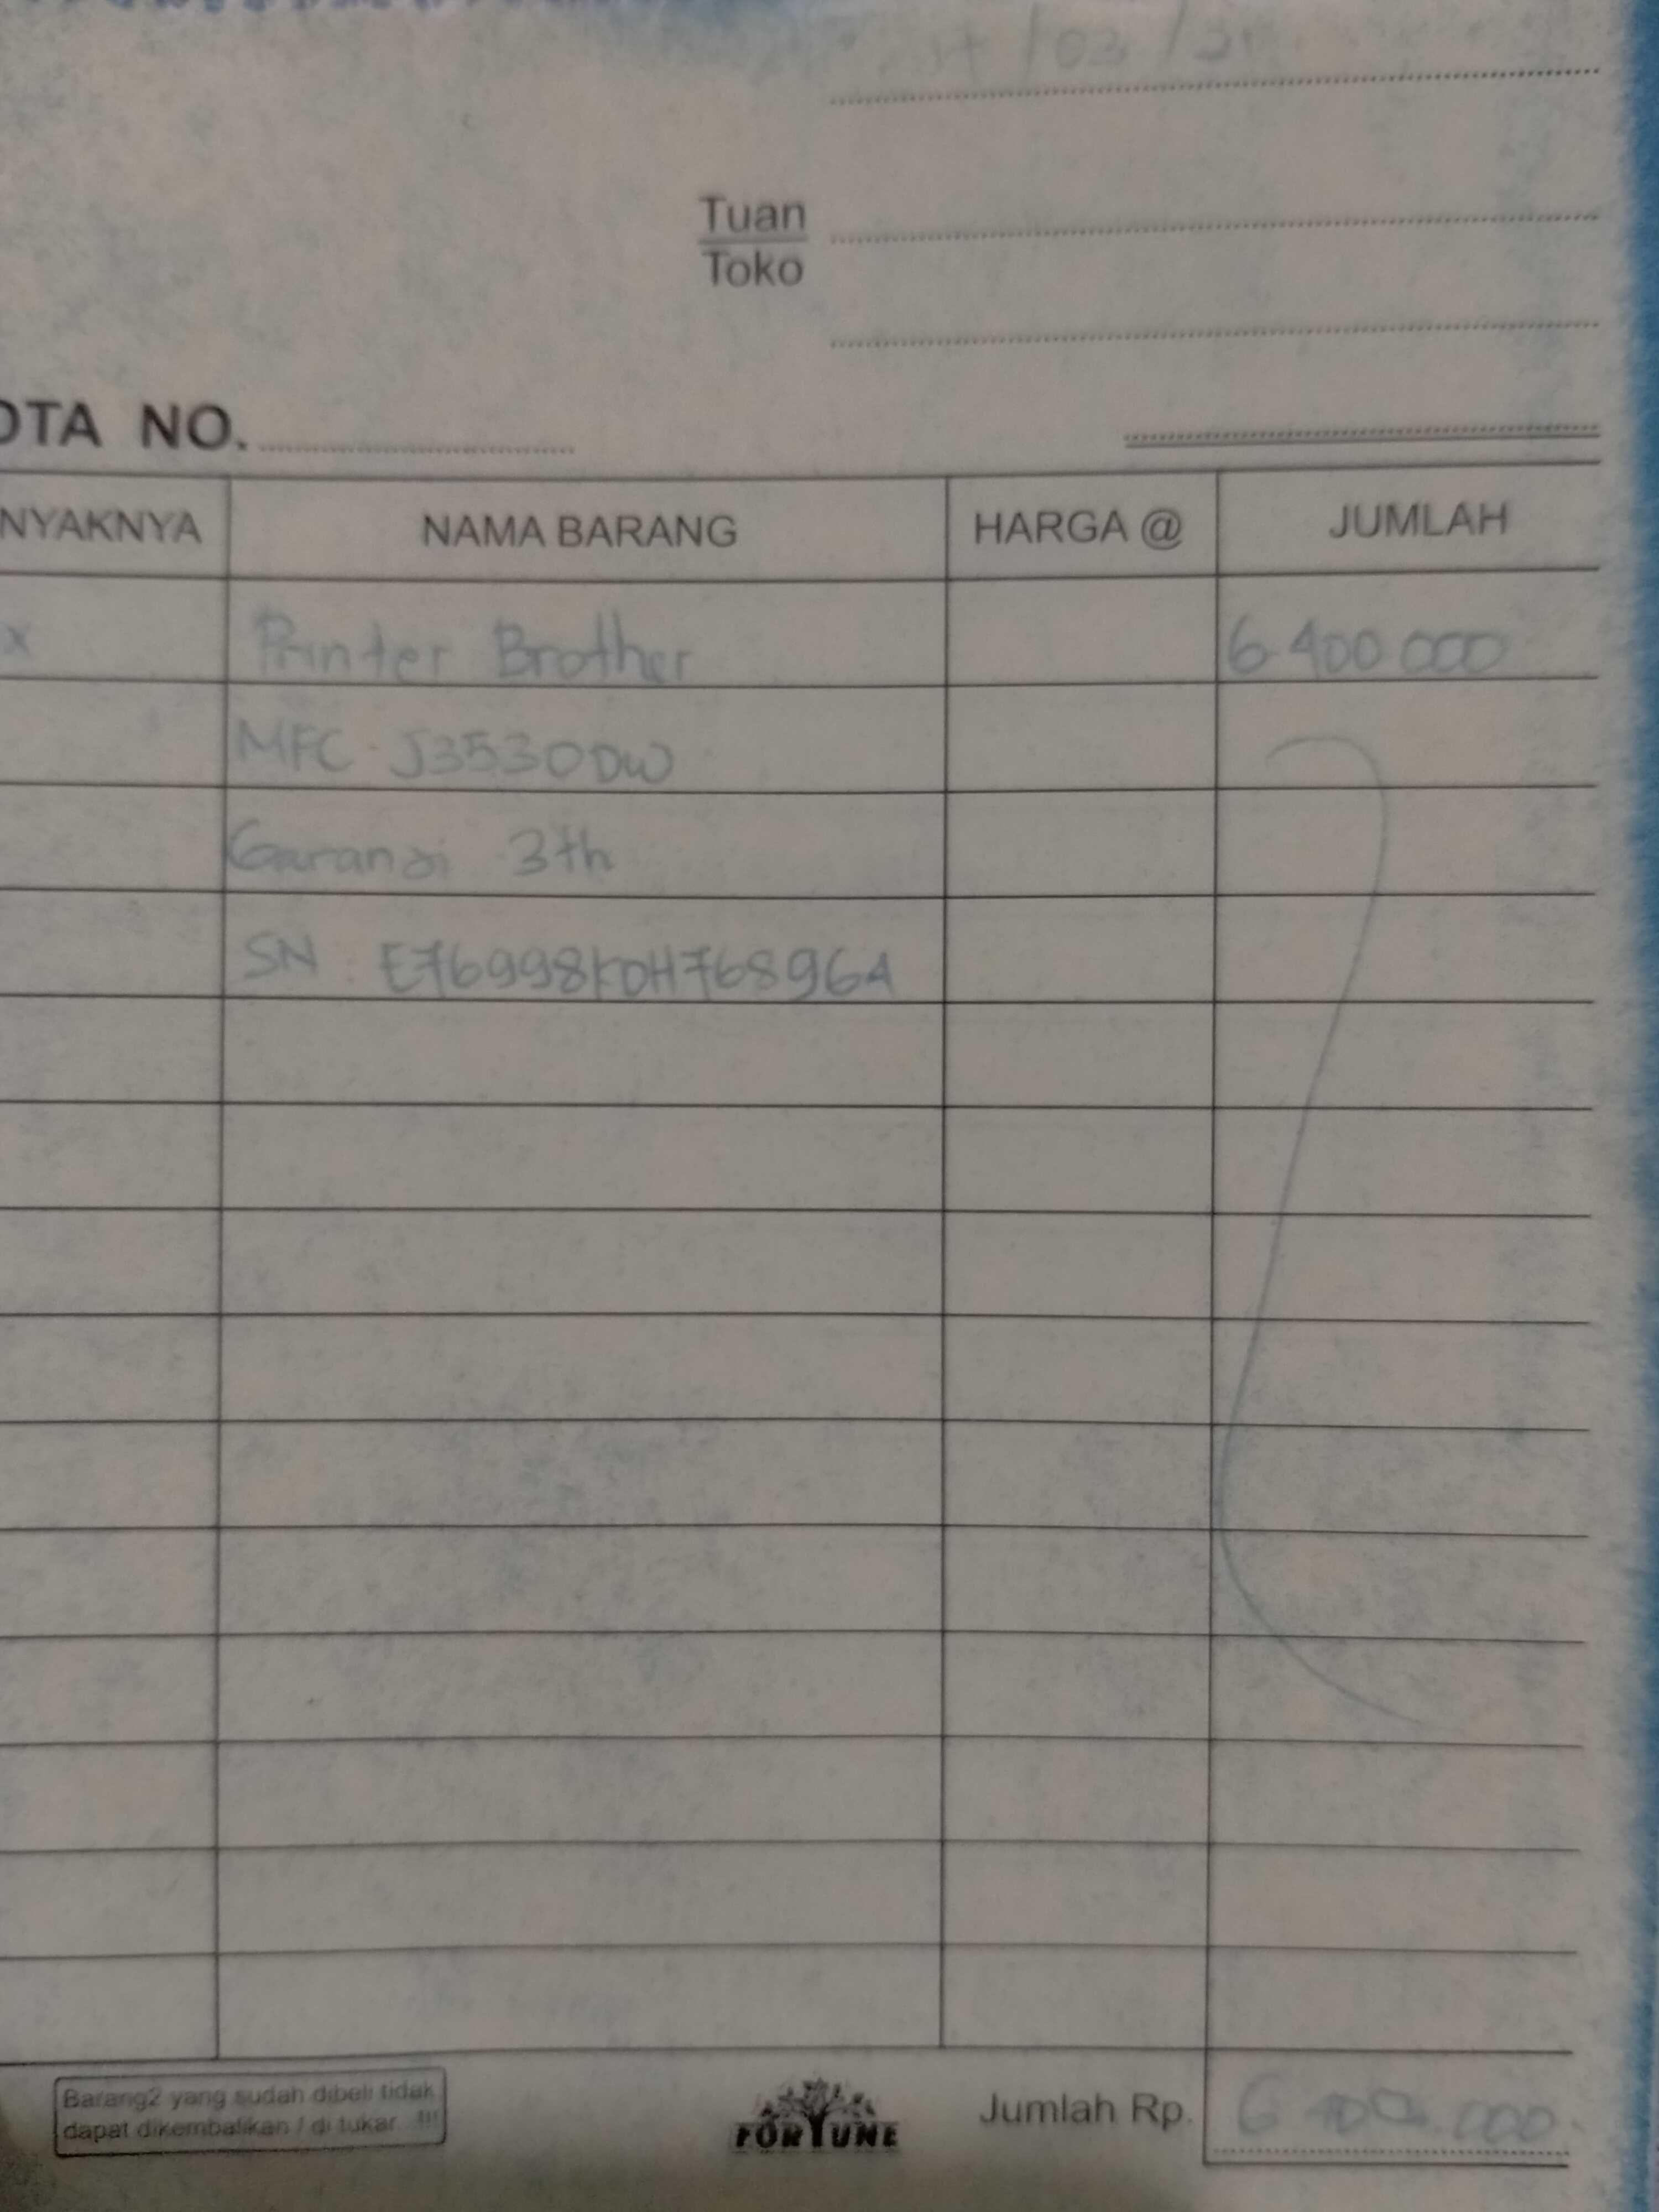 /03/21
Tuan
Toko
OTA NO.
NYAKNYA NAMA BARANG HARGA @ JUMLAH
x Printer Brother 6 400 000
MFC J3530DW
Garansi 3th
SN : E76998K0H768964
Barang2 yang sudah dibeli tidak
dapat dikembalikan / di tukar !!!
FORTUNE
Jumlah Rp. 6 400.000